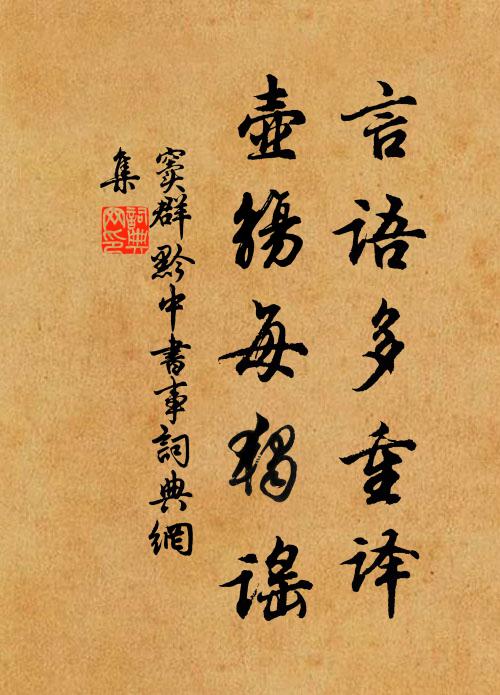 言语多重译
壶觞每独谣
窦群黔中书事词典网
集
词典网印